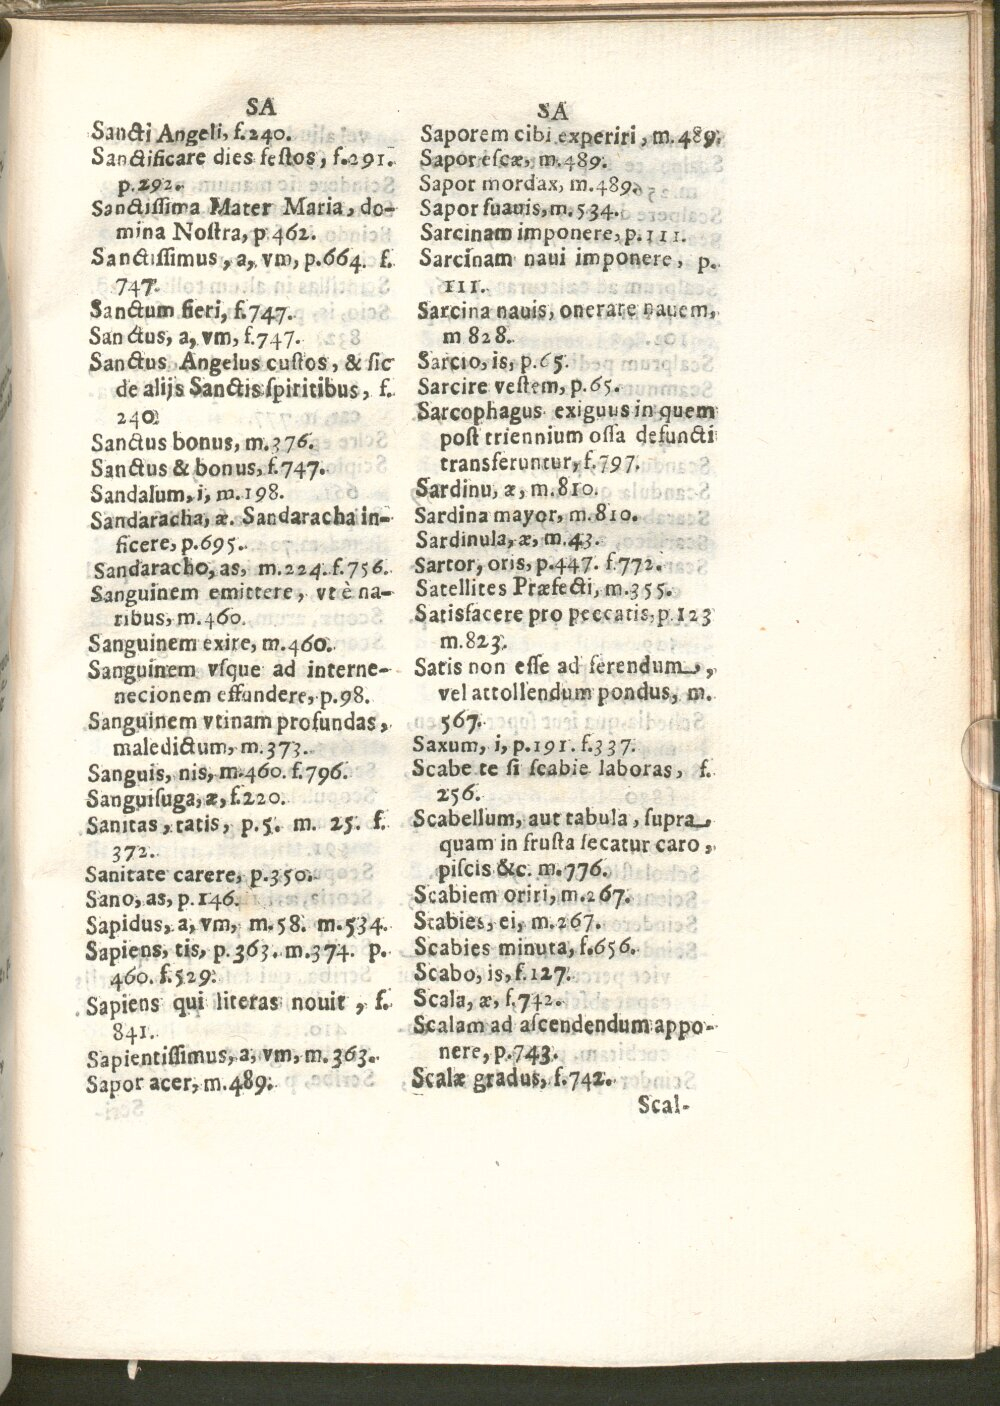 SA
Sancti Angeli, f.240.
Sanctificare dies festos, f.291.
p.292.
Sanctissima Mater Maria, do-
mina Nostra, p.462.
Sanctissimus, a, vm, p.664. f.
747.
Sanctum fieri, f.747.
Sanctus, a, vm, f.747.
Sanctus Angelus custos, & sic
de alijs Sanctis spiritibus, f.
240.
Sanctus bonus, m.376.
Sanctus & bonus, f.747.
Sandalum, i, m.198.
Sandaracha, æ. Sandaracha in-
ficere, p.695.
Sandaracho, as, m.224. f.756.
Sanguinem emittere, vt è na-
ribus, m.460.
Sanguinem exire, m.460.
Sanguinem vsque ad interne-
necionem effundere, p.98.
Sanguinem vtinam profundas,
maledictum, m.373.
Sanguis, nis, m.460. f.796.
Sanguisuga, æ, f.220.
Sanitas, tatis, p.5. m. 25. f.
372.
Sanitate carere, p.350.
Sano, as, p.146.
Sapidus, a, vm, m.58. m.534.
Sapiens, tis, p.363. m.374. p.
460. f.529.
Sapiens qui literas nouit, f.
841.
Sapientissimus, a, vm, m.363.
Sapor acer, m.489.
SA
Saporem cibi experiri, m.489.
Sapor escæ, m.489.
Sapor mordax, m.489.
Sapor suauis, m.534.
Sarcinam imponere, p.111.
Sarcinam naui imponere, p.
111.
Sarcina nauis, onerare nauem,
m 828.
Sarcio, is, p.65.
Sarcire vestem, p.65.
Sarcophagus exiguus in quem
post triennium ossa defuncti
transferuntur, f.797.
Sardinu, æ, m.810.
Sardina mayor, m.810.
Sardinula, æ, m.43.
Sartor, oris, p.447. f.772.
Satellites Præfecti, m.355.
Satisfacere pro peccatis, p.123
m.823.
Satis non esse ad ferendum,
vel attollendum pondus, m.
567.
Saxum, i, p.191. f.337.
Scabe te si scabie laboras, f.
256.
Scabellum, aut tabula, supra
quam in frusta secatur caro,
piscis &c. m.776.
Scabiem oriri, m.267.
Scabies, ei, m.267.
Scabies minuta, f.656.
Scabo, is, f.127.
Scala, æ, f.742.
Scalam ad ascendendum appo-
nere, p.743.
Scalæ gradus, f.742.
Scal-